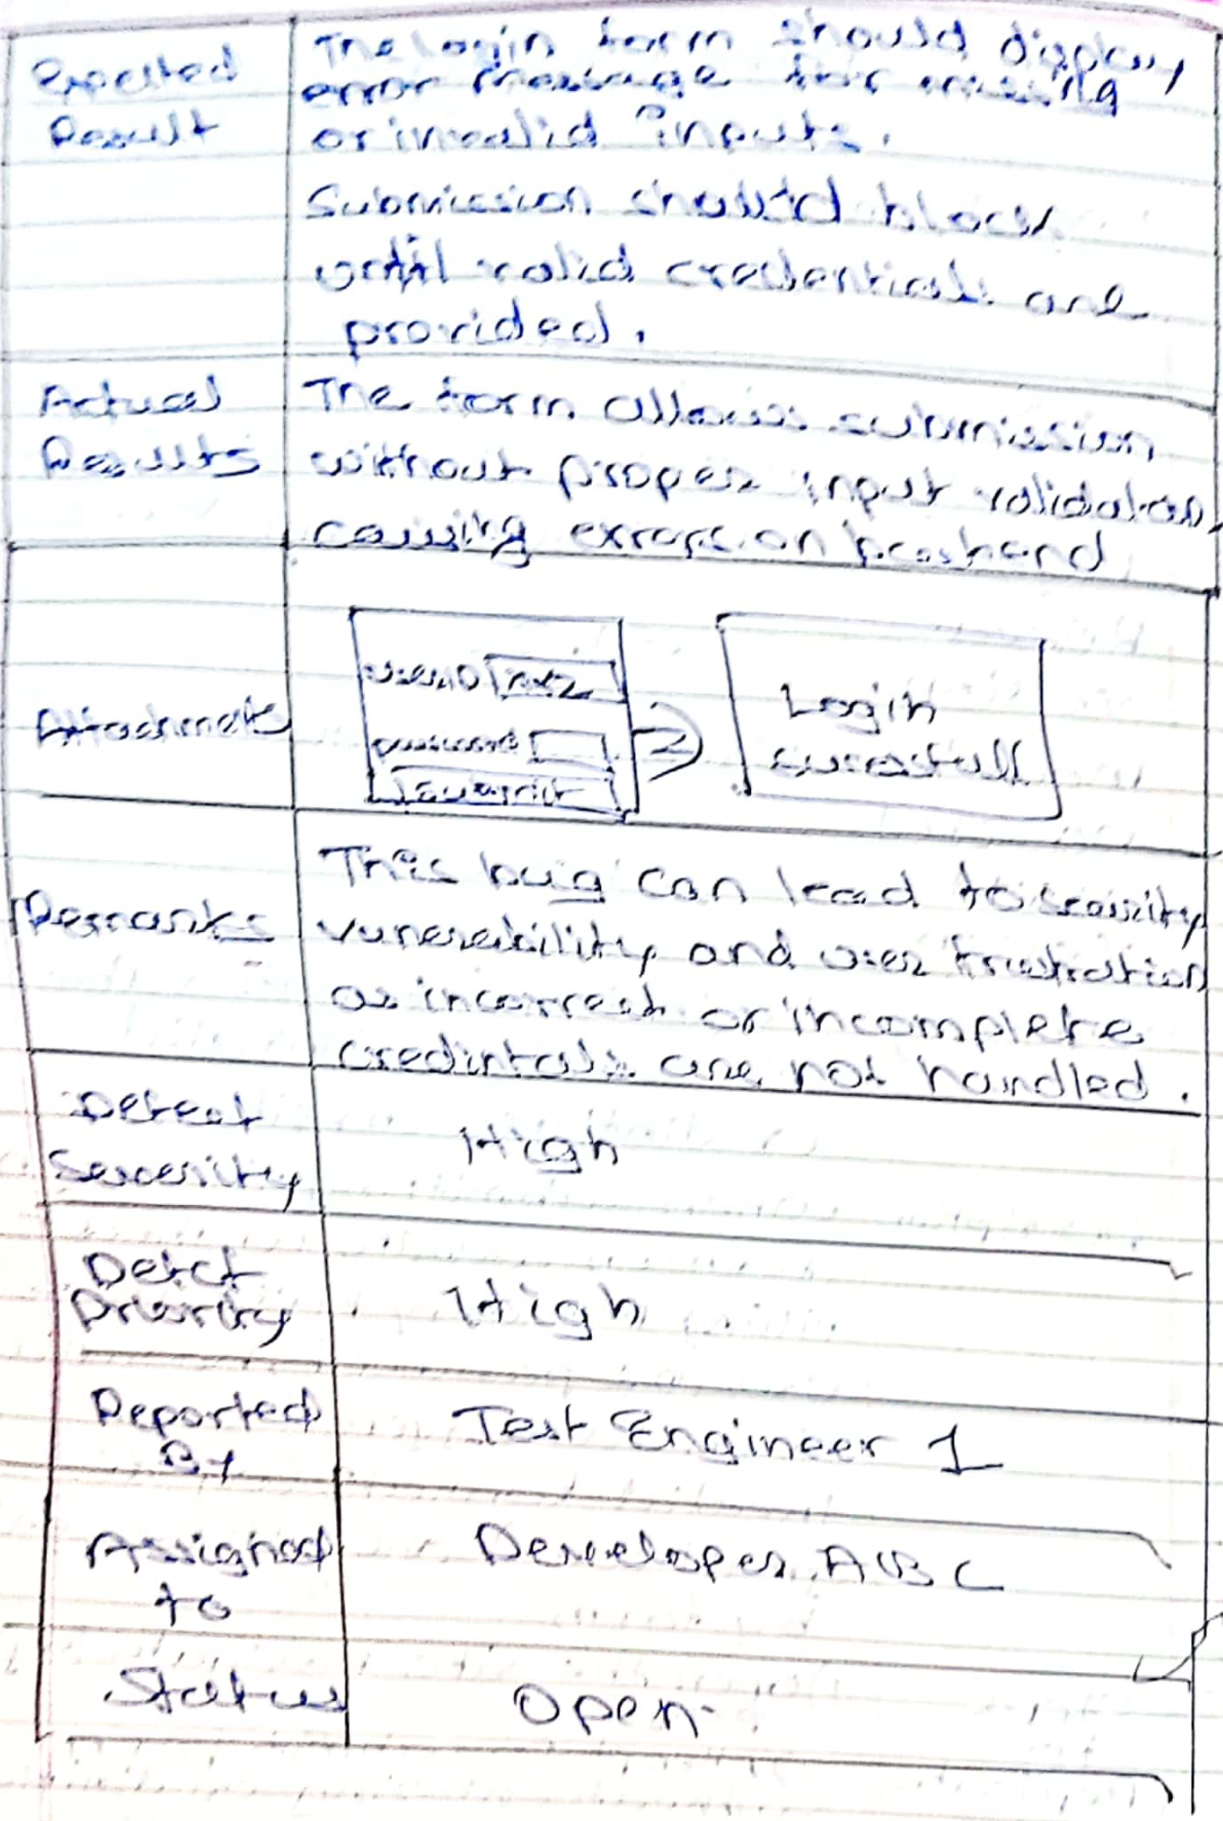 Expected
Result
The Login form should display
error message for missing
or invalid inputs.
Submission should block
until valid credentials are
provided.
Actual
Results
The form allows submission
without proper input validation
causing errors on backend
Attachmets
userID xyz
password
submit
Login
sucessfull
Remarks
This bug can lead to security
vunerability and user frustration
as incorrect or incomplete
credintals are not handled.
Defect
Severity
High
Detct
Priority
High
Reported
By
Test Engineer 1
Assigned
to
Developer ABC
Status
Open